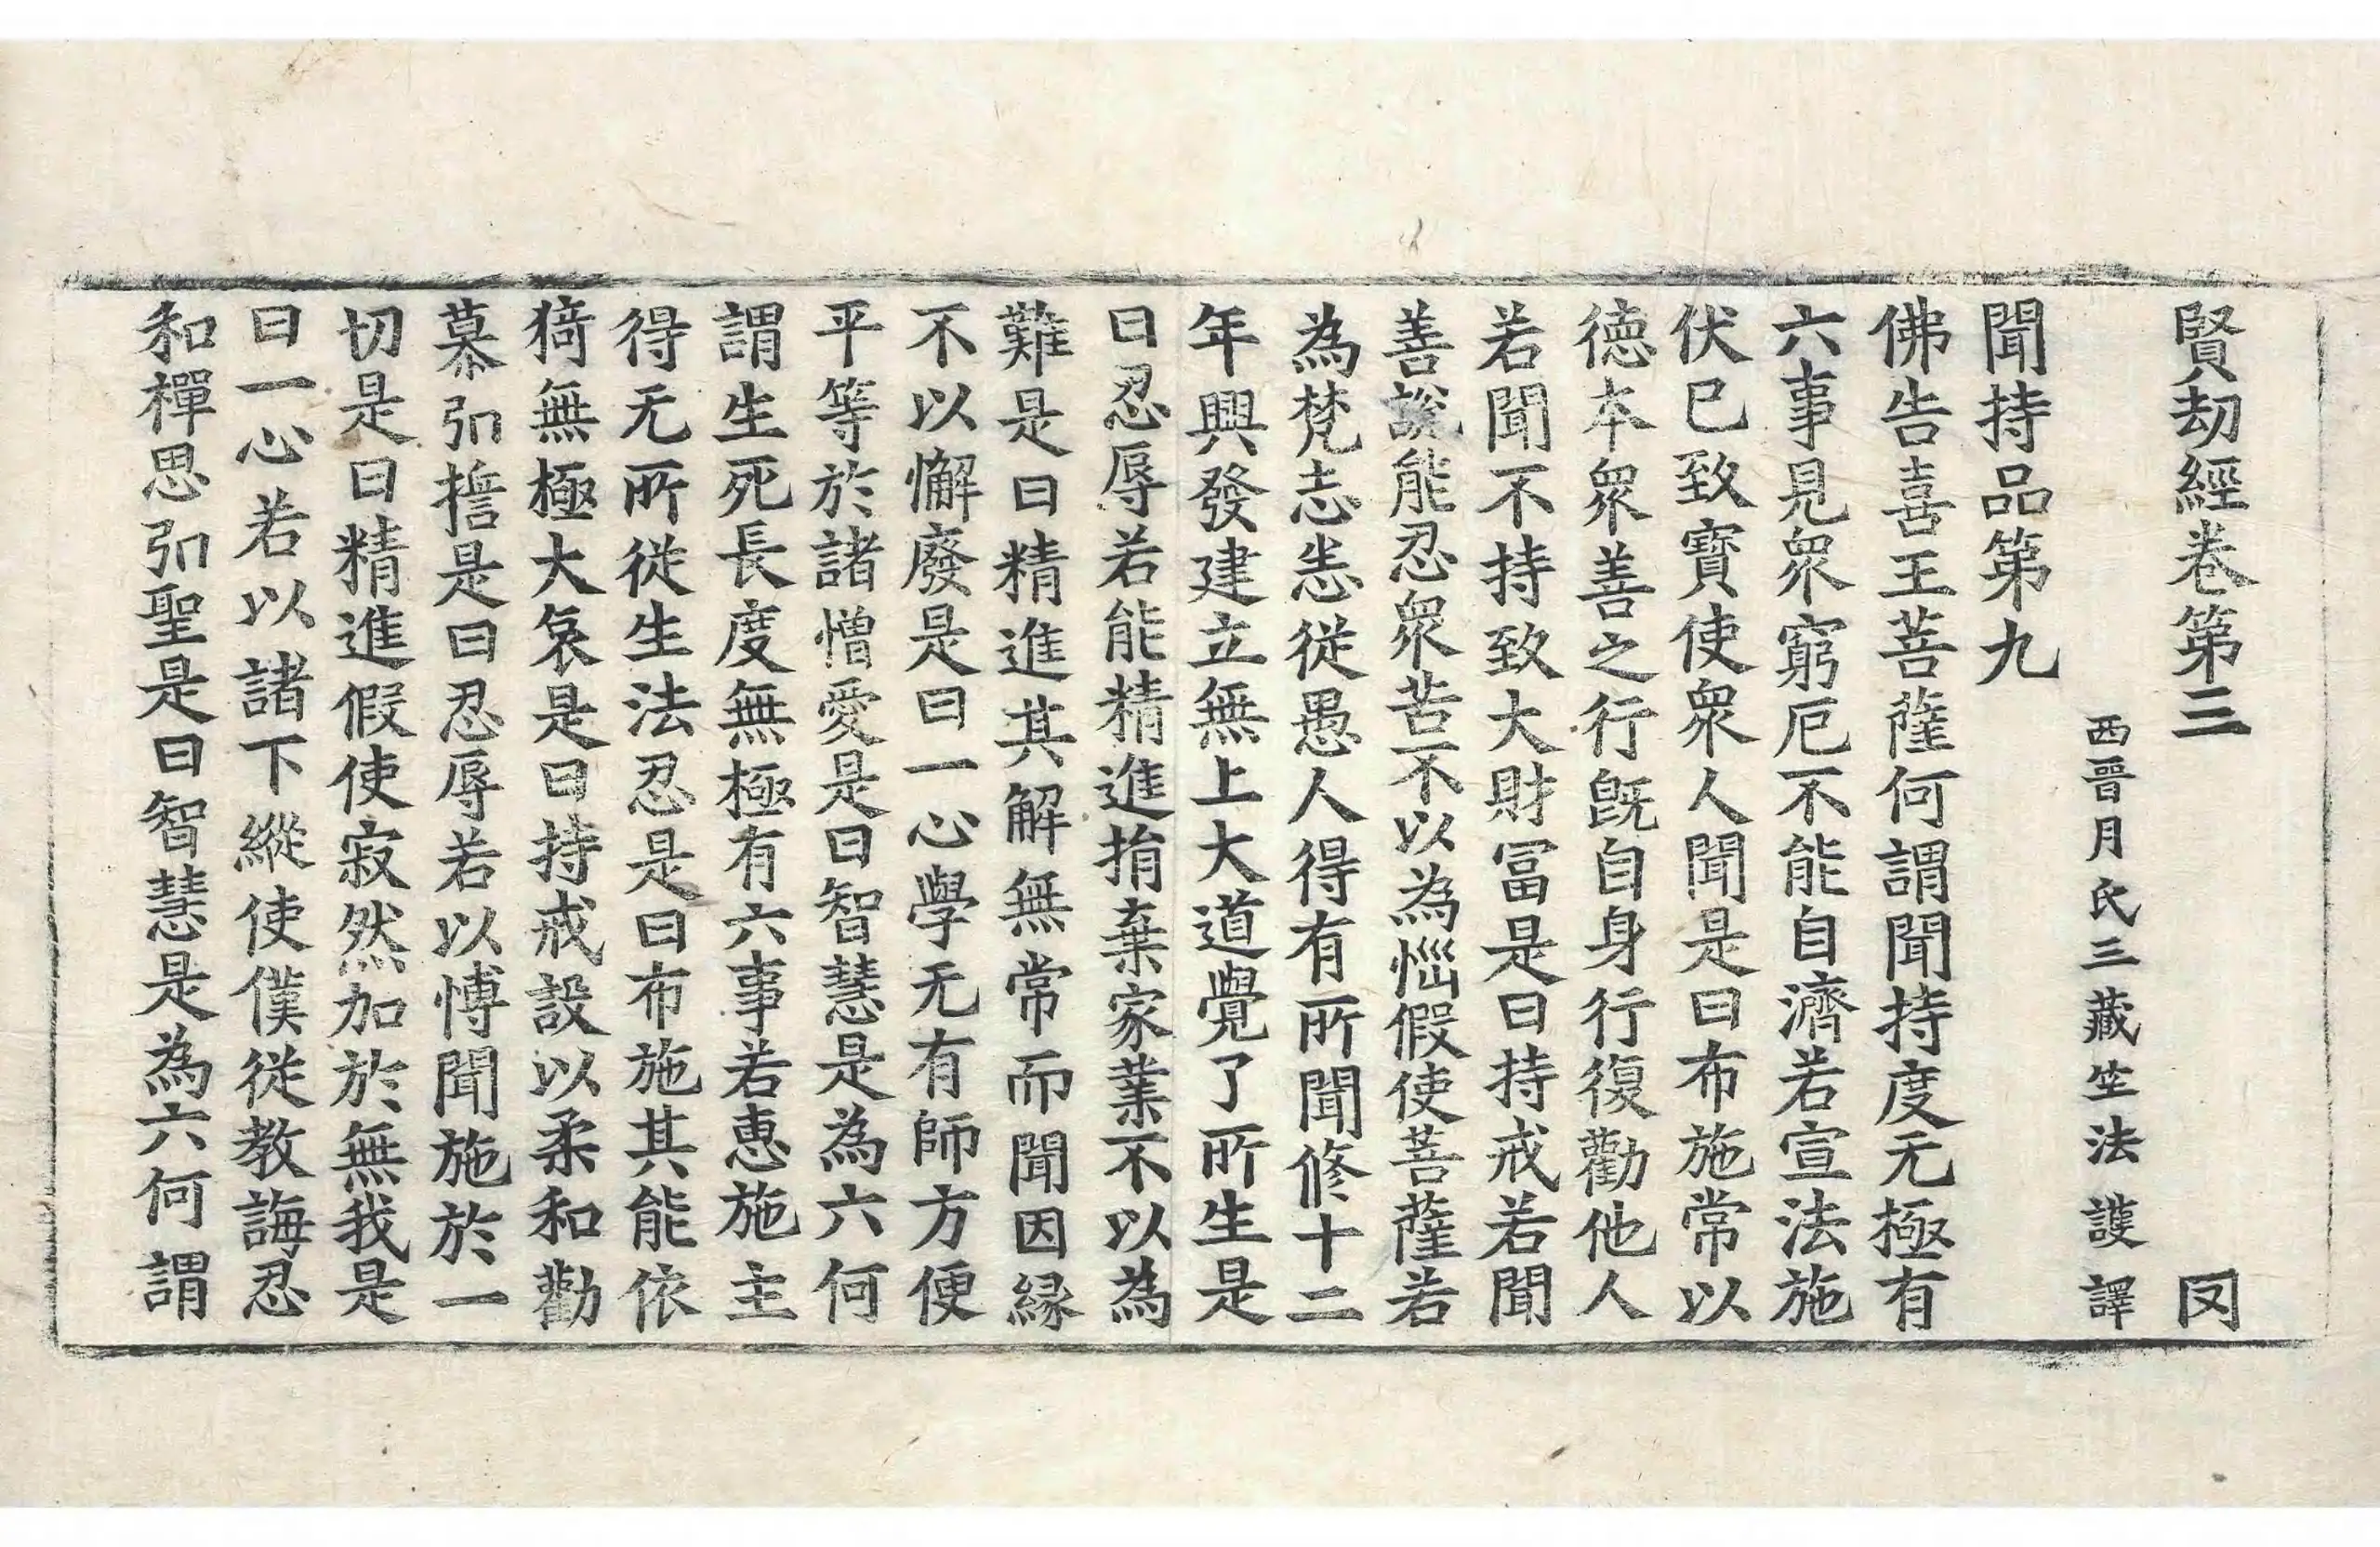 賢劫經卷第三 㓁
西晉月氏三藏竺法護譯
聞持品第九
佛告喜王菩薩何謂聞持度无極有
六事見衆窮厄不能自濟若宣法施
伏已致寶使衆人聞是曰布施常以
德本衆善之行旣自身行復勸他人
若聞不持致大財冨是曰持戒若聞
善說能忍衆苦不以為惱假使菩薩若
為梵志恚從愚人得有所聞修十二
年興發建立無上大道覺了所生是
曰忍辱若能精進捐棄家業不以為
難是曰精進其解無常而聞因緣
不以懈廢是曰一心學无有師方便
平等於諸憎愛是曰智慧是為六何
謂生死長度無極有六事若惠施主
得无所從生法忍是曰布施其能依
猗無極大哀是曰持戒設以柔和勸
慕弘擔是曰忍辱若以愽聞施於一
切是曰精進假使寂然加於無我是
曰一心若以諸下縱使僕從教誨忍
和禪思弘聖是曰智慧是為六何謂